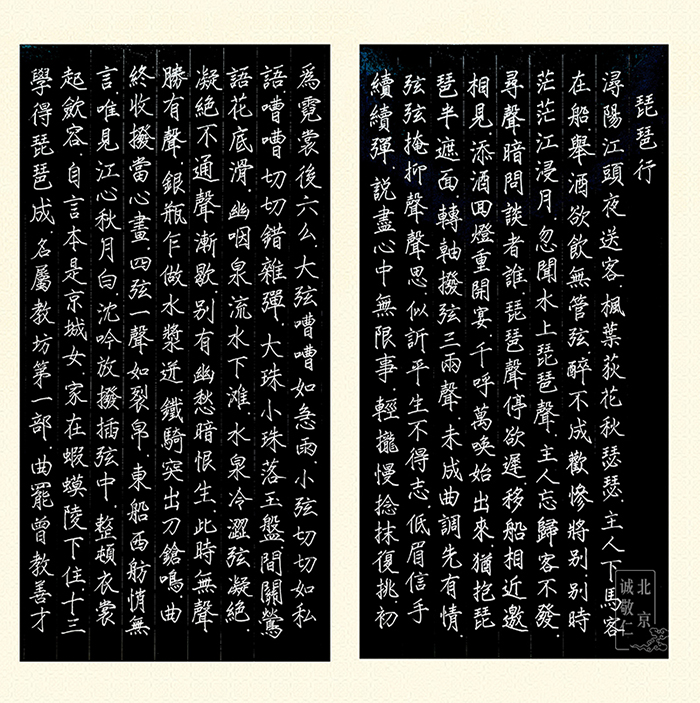 琵琶行
潯陽江頭夜送客.楓葉荻花秋瑟瑟.主人下馬客
在船舉酒欲飲無管弦.醉不成歡慘將別別時
茫茫江浸月.忽聞水上琵琶聲.主人忘歸客不發.
尋聲暗問談者誰.琵琶聲停欲遲.移船相近邀
相見.添酒回燈重開宴千呼萬喚始出來.猶抱琵
琶半遮面.轉軸撥弦三兩聲.未成曲調先有情.
弦弦掩抑聲聲思.似訴平生不得志.低眉信手
續續彈.説盡心中無限事.輕攏慢捻抹復挑.初
爲霓裳後六么.大弦嘈嘈如急雨.小弦切切如私
語.嘈嘈切切錯雜彈.大珠小珠落玉盤.間關鶯
語花底滑.幽咽泉流水下滩.水泉冷澀弦凝絕.
凝絕不通聲漸歇.别有幽愁暗恨生.此時無聲
勝有聲.銀瓶乍做水漿迸.鐵騎突出刀鎗鳴曲
終收撥當心畫.四弦一聲如裂帛.東船西舫悄無
言.唯見江心秋月白沈吟放撥插弦中.整頓衣裳
起斂容.自言本是京城女家在蝦蟆陵下住十三
學得琵琶成.名屬教坊第一部.曲罷曾教善才
北京
诚敬仁